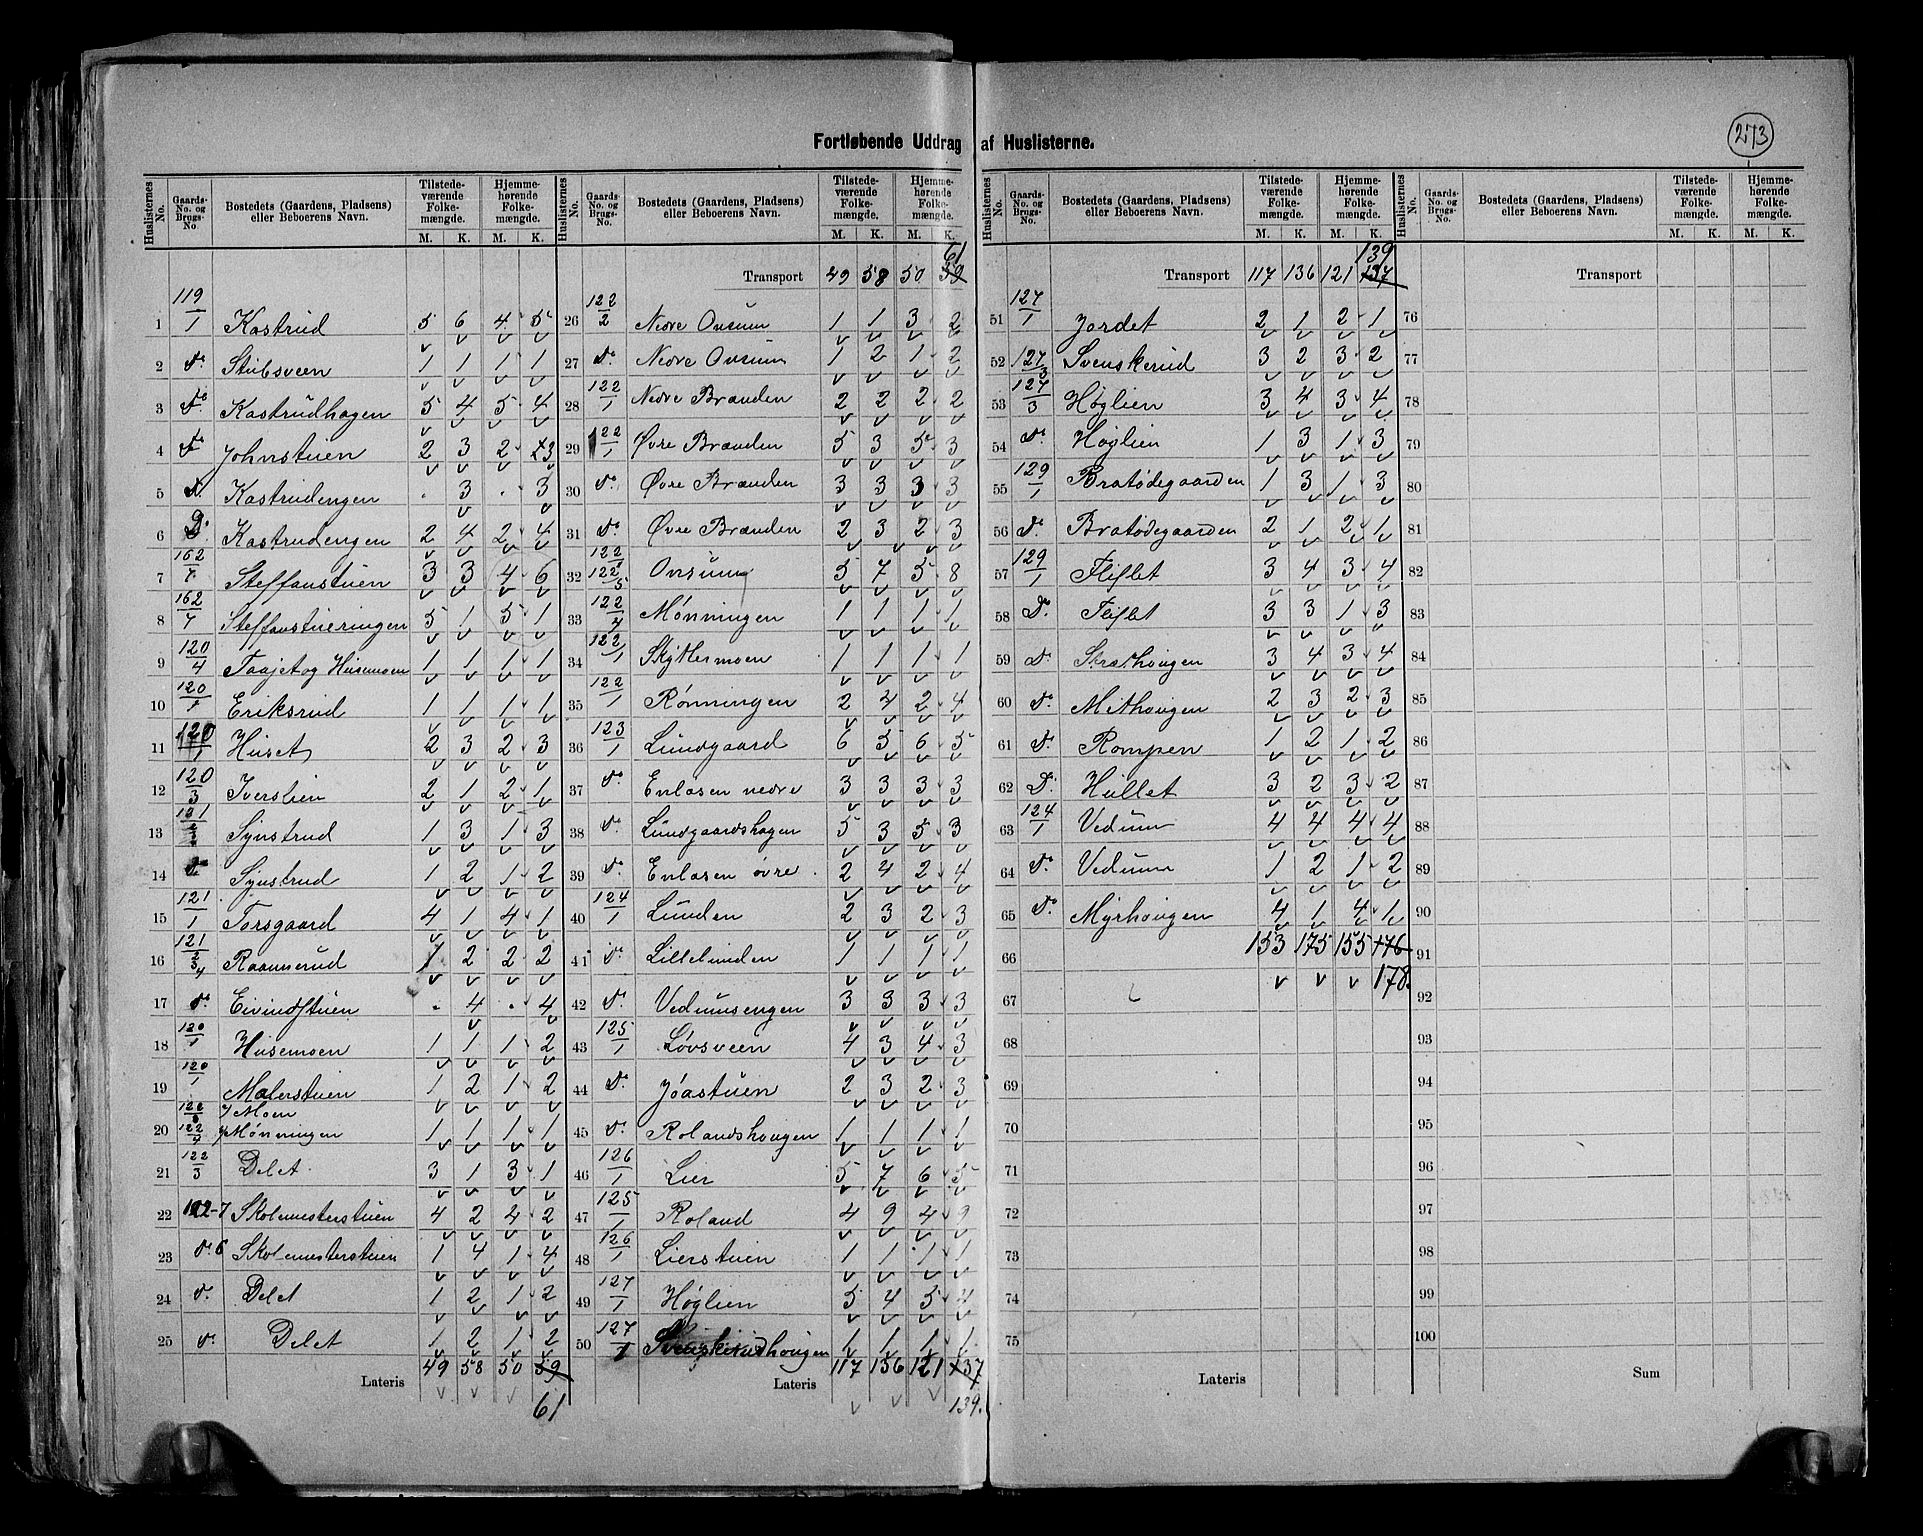 Fortløbende Uddrag af Huslisterne.
273
Huslisternes No. | Gaards-No. og Brugs-No. | Bostedets (Gaardens, Pladsens) eller Beboerens Navn. | Tilstedeværende Folkemængde. M. K. | Hjemmehørende Folkemængde. M. K.
1 119/1 Kastrud 5 6 4 5
2 do Stubsveen 1 1 1 1
3 do Kastrudhagen 5 4 5 4
4 do Johnstuen 2 3 2 3
5 do Kastrudengen . 3 . 3
6 Do Kastrudengen 2 4 2 4
7 162/7 Steffanstuen 3 3 4 6
8 162/7 Steffanstueringen 5 1 5 1
9 120/4 Taajet og Husemoen 1 1 1 1
10 120/1 Eriksrud 1 1 1 1
11 120/1 Huset 2 3 2 3
12 120/3 Iverslien 2 1 2 1
13 121/2 Synstrud 1 3 1 3
14 do Synstrud 1 2 1 2
15 121/1 Torsgaard 4 1 4 1
16 121/3 4 Raannerud 1 2 2 2
17 do Eivindstuen . 4 . 4
18 120/1 Husemoen 1 1 1 2
19 120/1 Malerstuen 1 2 1 2
122/8 Moen
20 122/4 Mønningen 1 1 1 1
21 122/3 Delet 3 1 3 1
22 122-7 Skolemesterstuen 4 2 4 2
23 do 6 Skolemesterstuen 1 4 1 4
24 do Delet 1 2 1 2
25 do Delet 1 2 1 2
Lateris 49 58 50 59
61
61
Transport 49 58 50 59
26 122/2 Nedre Ovsum 1 1 3 2
27 do Nedre Ovsum 1 2 1 2
28 122/1 Nedre Brænden 2 2 2 2
29 122/1 Øvre Brænden 5 3 5 3
30 do Øvre Brænden 3 3 3 3
31 do Øvre Brænden 2 3 2 3
32 122/1 122/5 Ovsum 5 7 5 8
33 122/4 Mønningen 1 1 1 1
34 122/1 Skyttermoen 1 1 1 1
35 122/1 Rønningen 2 4 2 4
36 123/1 Lundgaard 6 5 6 5
37 do Enlosen nedre 3 3 3 3
38 do Lundgaardshagen 5 3 5 3
39 do Enlosen øvre . 2 4 2 4
40 124/1 Lunden 2 3 2 3
41 do Lillelunden 1 1 1 1
42 do Vedumsengen 3 3 3 3
43 125/1 Løvsveen 4 3 4 3
44 do Joastuen 2 3 2 3
45 do Rolandshougen 1 1 1 1
46 126/1 Lier 5 7 6 5
47 125/1 Roland 4 9 4 9
48 126/1 Lierstuen 1 1 1 1
49 127/1 Høglien 5 4 5 4
50 127/1 Svenskerudhougen 1 1 1 1
Lateris 117 136 121 137
139.
139
Transport 117 136 121 137
51 127/1 Jordet 2 1 2 1
52 127/3 Svenskerud 3 2 3 2
53 127/3 Høglien 3 4 3 4
54 do Høglien 1 3 1 3
55 129/1 Bratødegaarden 1 3 1 3
56 do Bratødegaarden 2 1 2 1
57 129/1 Fliflet 3 4 3 4
58 Do Fliflet 3 3 1 3
59 Do Stræthougen 3 4 3 4
60 do Mithougen 2 3 2 3
61 do Rompen 1 2 1 2
62 Do Hullet 3 2 3 2
63 124/1 Vedum 4 4 4 4
64 do Vedum 1 2 1 2
65 do Myrhougen 4 1 4 1
66 153 175 155 176
178.
67
68
69
70
71
72
73
74
75
Lateris
Transport
76
77
78
79
80
81
82
83
84
85
86
87
88
89
90
91
92
93
94
95
96
97
98
99
100
Sum